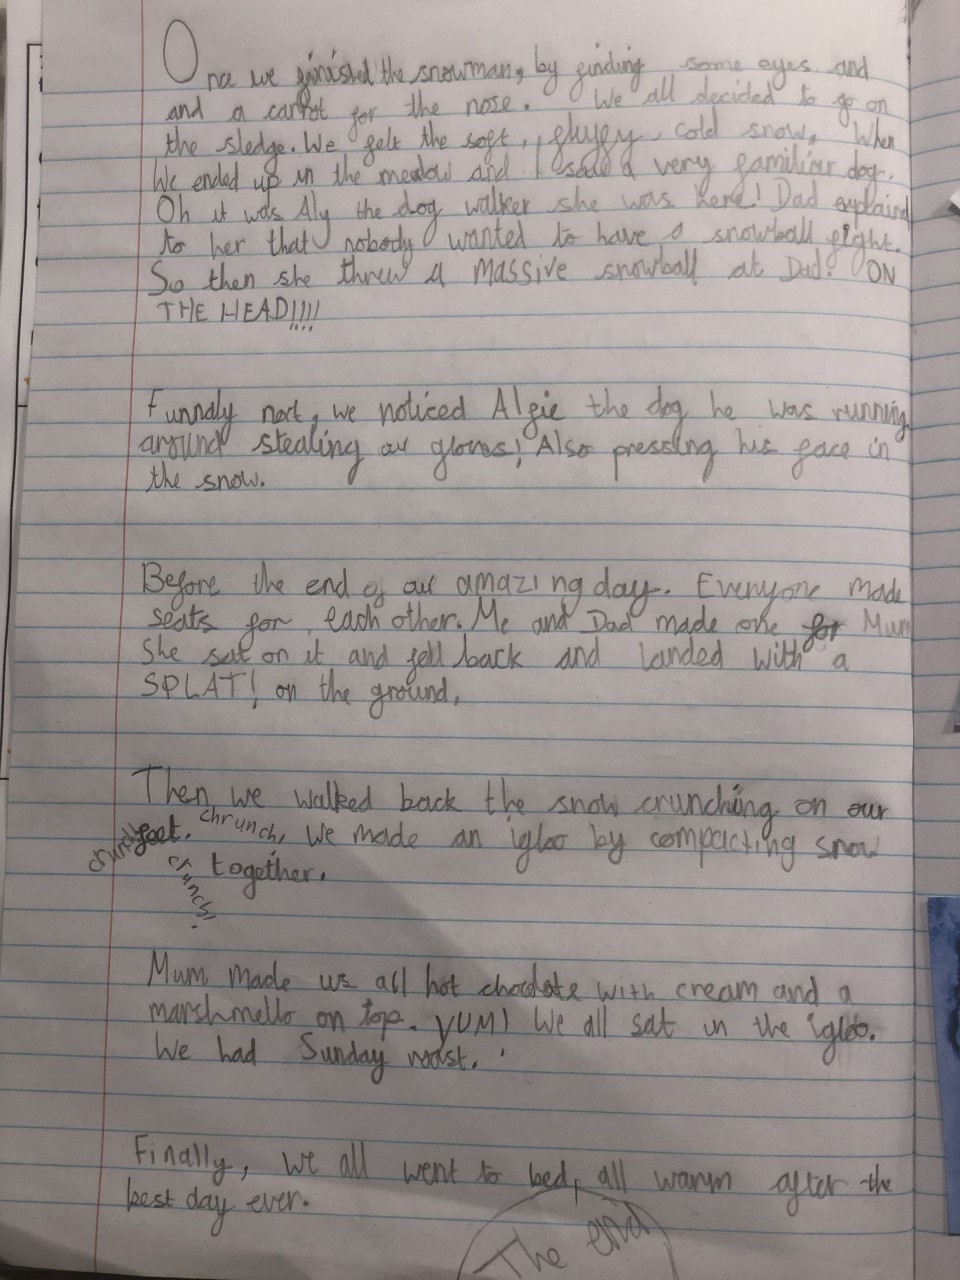 Once we finished the snowman, by finding some eyes and
and a carrot for the nose. We all decided to go on
the sledge. We felt the soft, fluffy, cold snow. When
We ended up in the meadow and I saw a very familier dog.
Oh it was Aly the dog walker she was here! Dad explaind
to her that nobody wanted to have a snowball fight.
So then she threw a massive snowball at Dad! ON
THE HEAD!!!!
Funndly next, we noticed Algie the dog he was running
around stealing our gloves! Also pressing his face in
the snow.
Before the end of our amazing day. Everyone made
seats for each other. Me and Dad made one for Mum
She sat on it and fell back and landed with a
SPLAT! on the ground.
Then, we walked back the snow crunching on our
feet. chrunch, We made an igloo by compacting snow
crunch
crunch!
together.
Mum made us all hot choclate with cream and a
marshmello on top. YUM! We all sat in the igloo.
We had Sunday roast.
Finally, we all went to bed, all warm after the
best day ever.
The end